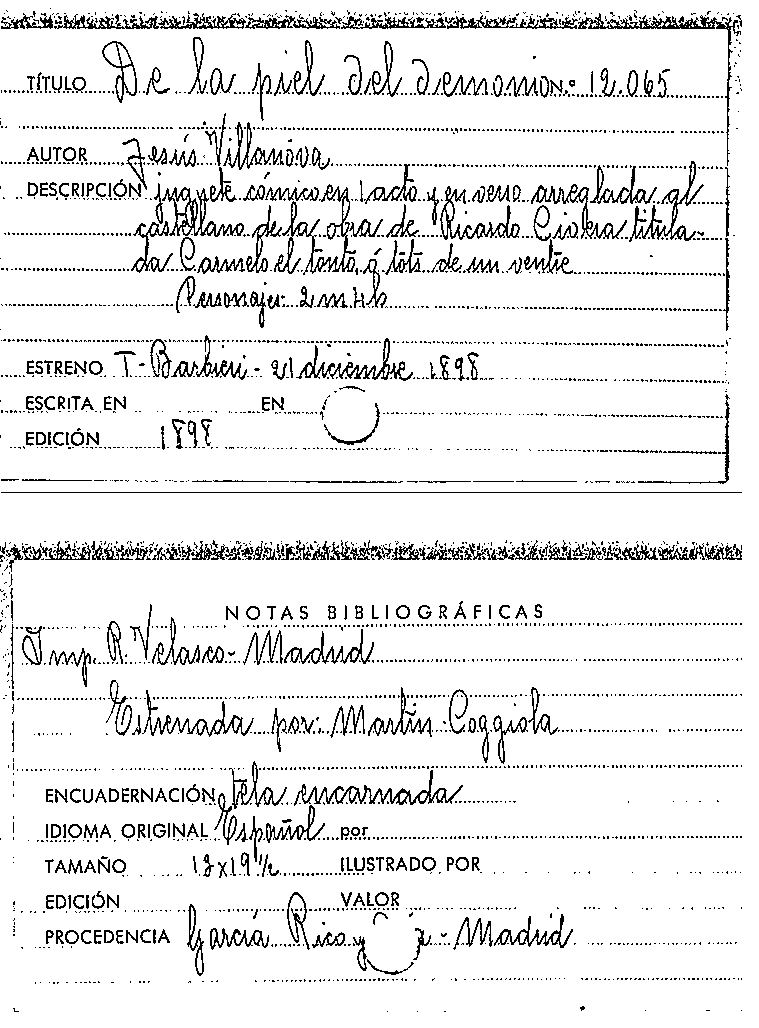 TÍTULO De la piel del demonio N.º 12.065
AUTOR Jesús Villanova
DESCRIPCIÓN juguete cómico en 1 acto y en verso arreglada al
castellano de la obra de Ricardo titula-
da Carmelo el tonto, ó tots de un ventre
Personajes: 2 m. 4 h
ESTRENO T- Barbieri - 21 diciembre 1898
ESCRITA EN EN
EDICIÓN 1898
NOTAS BIBLIOGRÁFICAS
Imp. R. Velasco- Madrid
Estrenada por: Martín- Coggiola
ENCUADERNACIÓN tela encarnada
IDIOMA ORIGINAL Español por
TAMAÑO 13x19 1/2 ILUSTRADO POR
EDICIÓN VALOR
PROCEDENCIA García Rico y - Madrid